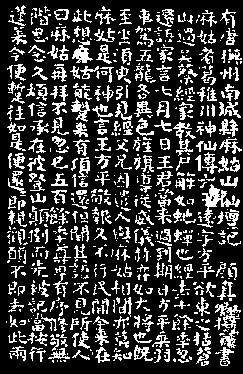 有唐撫州南城縣麻姑山仙壇記 顏真卿撰并書
麻姑者葛稚川神仙傳云王遠字方平欲東之括蒼
山過吳蔡經家教其尸解如虵蟬也經去十餘年忽
還語家言七月七日王君當來過到期日方平乘羽
車駕五龍各異色旌旗導從威儀赫奕如大將也既
至坐須臾引見經父兄因遣人與麻姑相聞亦莫知
麻姑是何神也言王方平敬報久不行民間今來在
此想麻姑能暫來有頃信還但聞其語不見所使人
曰麻姑再拜不見忽已五百餘年尊卑有序修敬無
階思念久煩信承在彼登山顛倒而先被記當按行
蓬萊今便暫往如是便還還即親觀願不即去如此兩